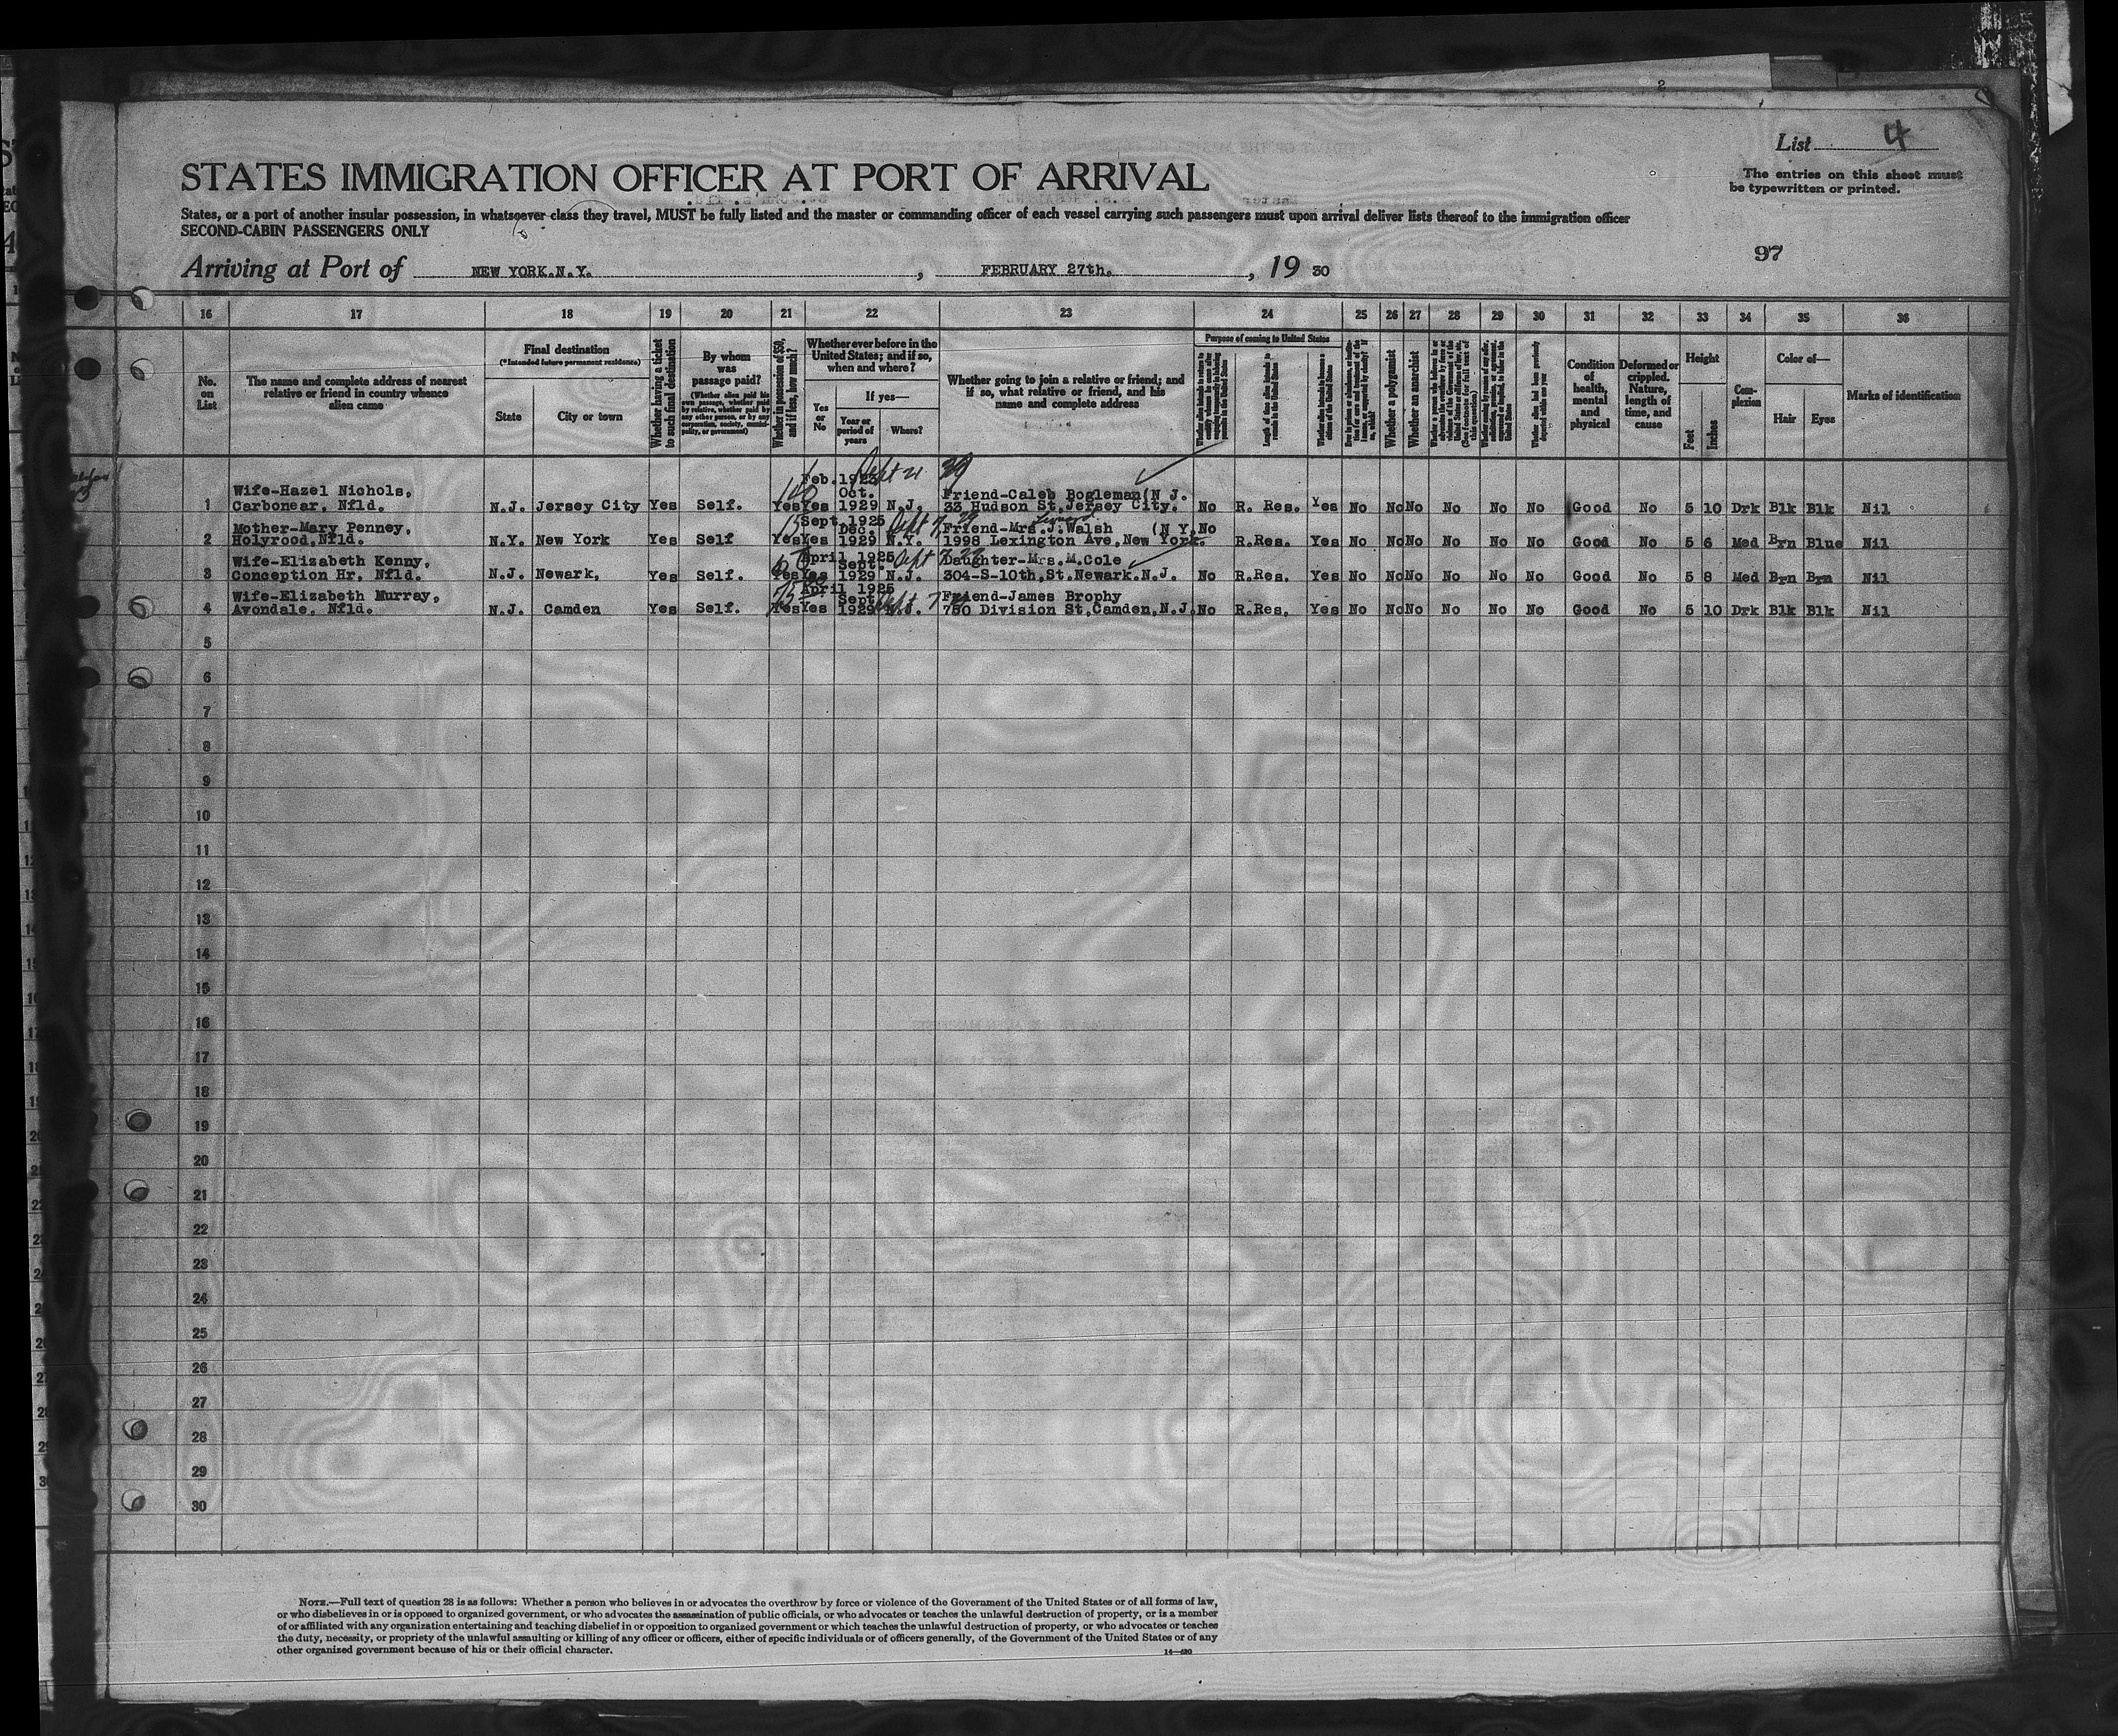 List 4
STATES IMMIGRATION OFFICER AT PORT OF ARRIVAL
The entries on this sheet must
be typewritten or printed.
States, or a port of another insular possession, in whatsoever class they travel, MUST be fully listed and the master or commanding officer of each vessel carrying such passengers must upon arrival deliver lists thereof to the immigration officer
SECOND-CABIN PASSENGERS ONLY
97
Arriving at Port of NEW YORK.N.Y. , FEBRUARY 27th. , 19 30
16 17 18 19 20 21 22 23 24 25 26 27 28 29 30 31 32 33 34 35 36
No. on List
The name and complete address of nearest relative or friend in country whence alien came
Final destination
(*Intended future permanent residence)
State
City or town
Whether having a ticket to such final destination
By whom was passage paid?
(Whether alien paid his own passage, whether paid by relative, whether paid by any other person, or by any corporation, society, municipality, or government)
Whether in possession of $50, and if less, how much?
Whether ever before in the United States; and if so, when and where?
Yes or No
If yes—
Year or period of years
Where?
Whether going to join a relative or friend; and if so, what relative or friend, and his name and complete address
Purpose of coming to United States
Length of time alien intends to remain in the United States
Whether a polygamist
Whether an anarchist
Condition of health, mental and physical
Deformed or crippled. Nature, length of time, and cause
Height
Feet
Inches
Complexion
Color of—
Hair
Eyes
Marks of identification
Feb. 192 29
Wife-Hazel Nichols, Oct. Friend-Caleb Bogleman(N J.
1 Carbonear, Nfld. N.J. Jersey City Yes Self. Yes Yes 1929 N.J. 33 Hudson St,Jersey City. No R. Res. Yes No No No No No No Good No 5 10 Drk Blk Blk Nil
Sept.1925
Mother-Mary Penney, Dec. Friend-Mrs.J.Walsh (N Y. No
2 Holyrood,Nfld. N.Y. New York Yes Self Yes Yes 1929 N.Y. 1998 Lexington Ave,New York. R.Res. Yes No No No No No No Good No 5 6 Med Brn Blue Nil
April 1925
Wife-Elizabeth Kenny, Sept. Daughter-Mrs.M.Cole
3 Conception Hr, Nfld. N.J. Newark, Yes Self. Yes Yes 1929 N.J. 304-S-10th,St.Newark.N.J. No R.Res. Yes No No No No No No Good No 5 8 Med Brn Brn Nil
April 1925
Wife-Elizabeth Murray, Sept Friend-James Brophy
4 Avondale, Nfld. N.J. Camden Yes Self. Yes Yes 1929 N.J. 750 Division St,Camden,N.J. No R.Res. Yes No No No No No No Good No 5 10 Drk Blk Blk Nil
5
6
7
8
9
10
11
12
13
14
15
16
17
18
19
20
21
22
23
24
25
26
27
28
29
30
NOTE.—Full text of question 28 is as follows: Whether a person who believes in or advocates the overthrow by force or violence of the Government of the United States or of all forms of law,
or who disbelieves in or is opposed to organized government, or who advocates the assassination of public officials, or who advocates or teaches the unlawful destruction of property, or is a member
of or affiliated with any organization entertaining and teaching disbelief in or opposition to organized government or which teaches the unlawful destruction of property, or who advocates or teaches
the duty, necessity, or propriety of the unlawful assaulting or killing of any officer or officers, either of specific individuals or of officers generally, of the Government of the United States or of any
other organized government because of his or their official character.
14—420